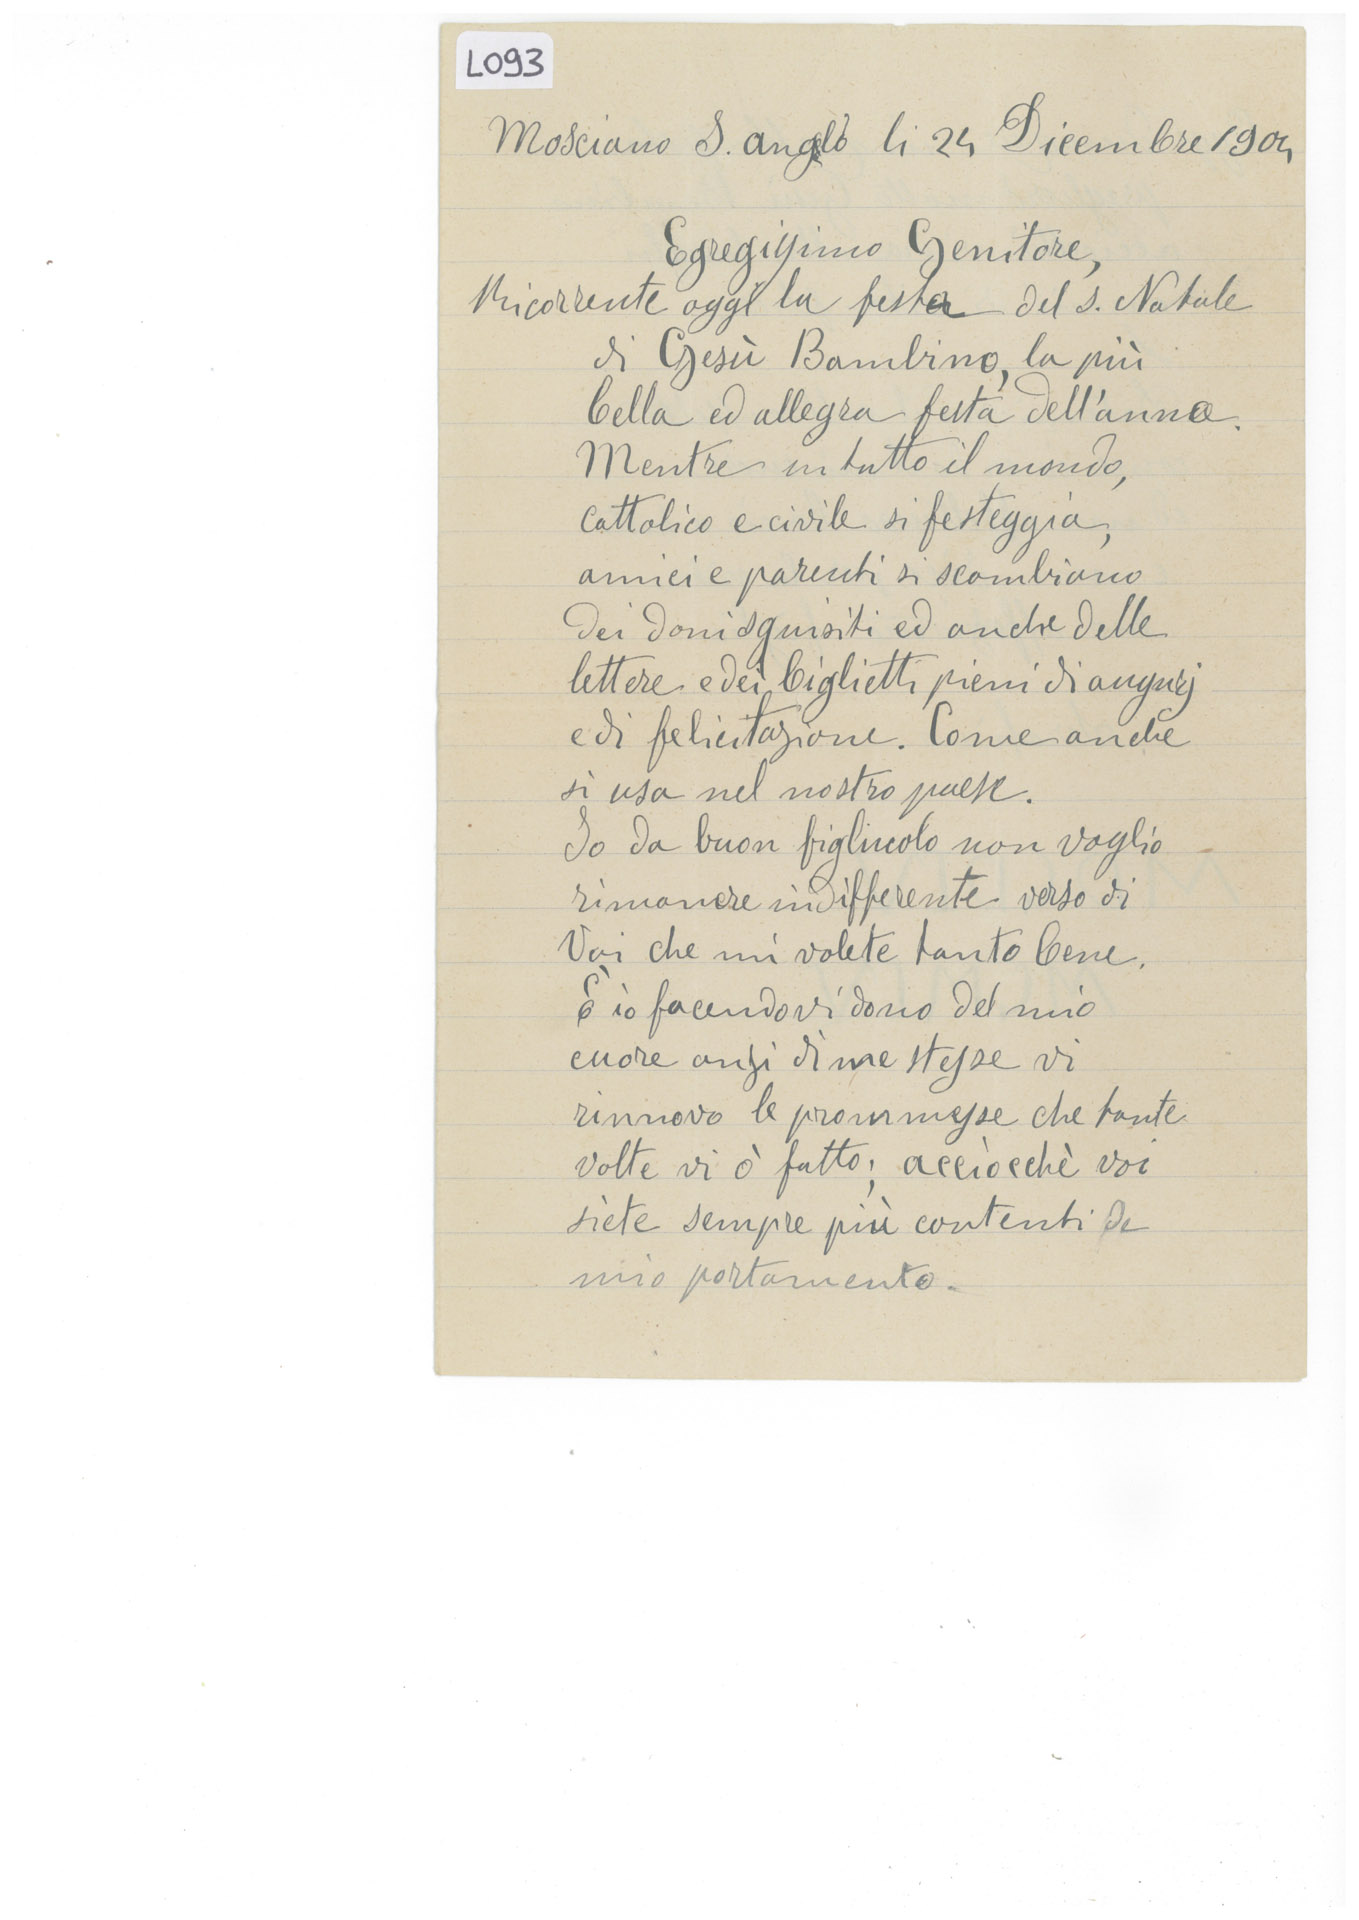 L093
Mosciano S. anglò li 24 Dicembre 1904
Egregissimo Genitore,
Ricorrente oggi la festa del S. Natale
di Gesù Bambino, la più
bella ed allegra festa dell'anno.
Mentre in tutto il mondo,
cattolico e civile si festeggia,
amici e parenti si scambiano
dei doni squisiti ed anche delle
lettere e dei biglietti pieni di augurj
e di felicitazione. Come anche
si usa nel nostro paese.
Io da buon figliuolo non voglio
rimanere indifferente verso di
Voi che mi volete tanto bene.
È io facendovi dono del mio
cuore anzi di me stesse vi
rinnovo le prommesse che tante
volte vi ò fatto; acciocchè voi
siete sempre più contenti de
mio portamento.